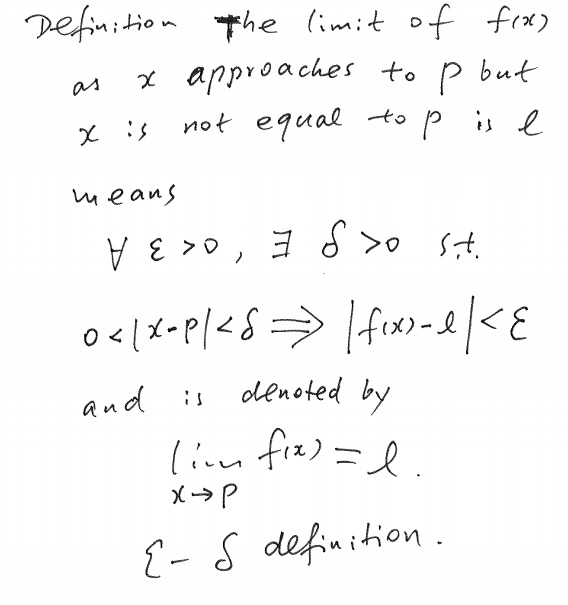 Definition The limit of f(x)
as x approaches to p but
x is not equal to p is l
means
∀ ε > 0, ∃ δ > 0 s.t.
0 < |x - p| < δ ⟹ |f(x) - l| < ε
and is denoted by
lim f(x) = l.
x → p
ε - δ definition.